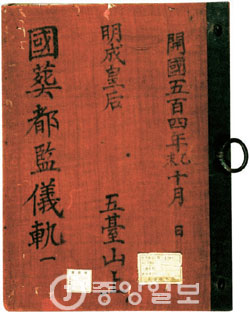 開國五百四年乙未十月 日
明成皇后
五臺山上
國葬都監儀軌 一
中央日報